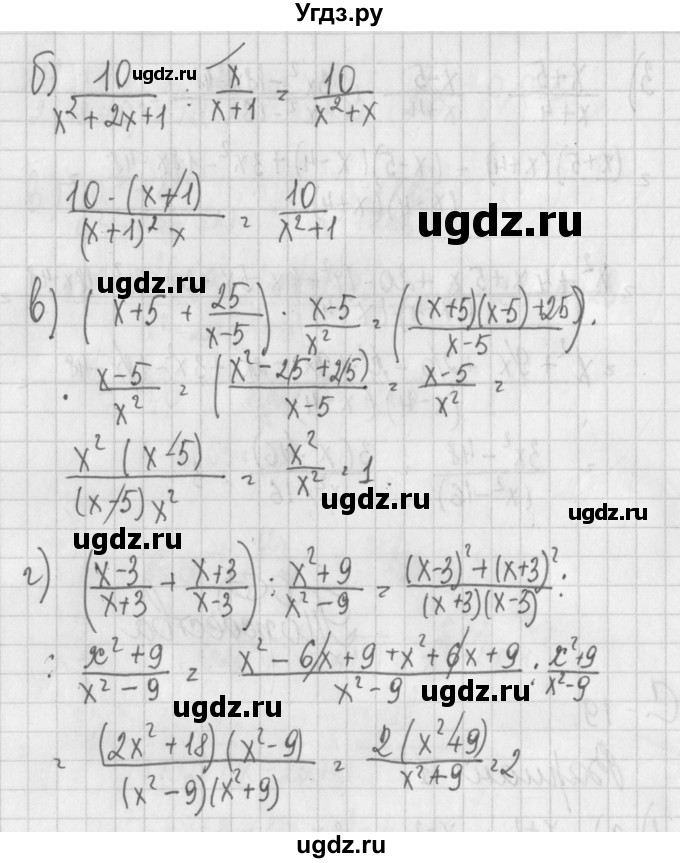 Угдз.ру
б) 10/(x²+2x+1) : x/(x+1) = 10/(x²+x)
угдз.ру
(10 · (x+1))/((x+1)² x) = 10/(x²+1)
ugdz.ru
в) (x+5 + 25/(x-5)) · (x-5)/x² = (((x+5)(x-5)+25)/(x-5)) ·
ugdz.ru
· (x-5)/x² = ((x²-25+25)/(x-5) = (x-5)/x² =
ugdz.ru
(x² (x-5))/((x-5) x²) = x²/x² = 1
ugdz.ru
ugdz.ru
ugdz.ru
г) ((x-3)/(x+3) + (x+3)/(x-3)) : (x²+9)/(x²-9) = ((x-3)²+(x+3)²)/((x+3)(x-3)) :
ugdz.ru
ugdz.ru
: (x²+9)/(x²-9) = (x²-6x+9+x²+6x+9)/(x²-9) : (x²+9)/(x²-9)
ugdz.ru
ugdz.ru
= ((2x²+18)(x²-9))/((x²-9)(x²+9)) = (2(x²+9))/(x²+9) = 2
ugdz.ru
ugdz.ru
ugdz.ru